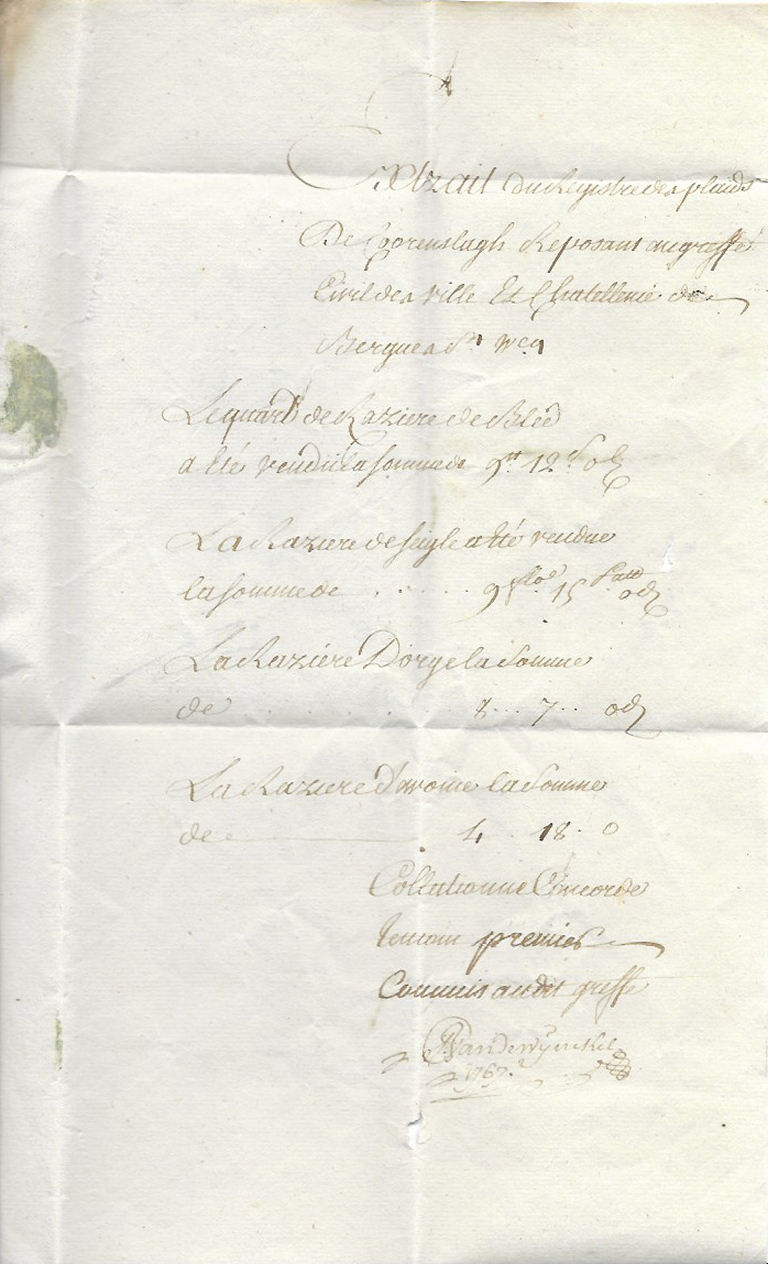 Extrait du Registre des plaids
De Coorenslagh Reposant au greffe
Civil des ville Et Chatellenie de
Bergues St Wcq
Le quart de Raziere de Bleé
a Eté vendu la somme de 9tt 12s od
La Raziere de seigle a Eté vendue
la somme de . . . . 9 flos 15 patt od
La Raziere D'orge la somme
de . . . . . 8 . . 7 . . od
La Raziere D'avoine la somme
de 4 . . 18 . 0
Collationné Concorde
temoin premier
Commis audit greffe
Vandewynckel
1767